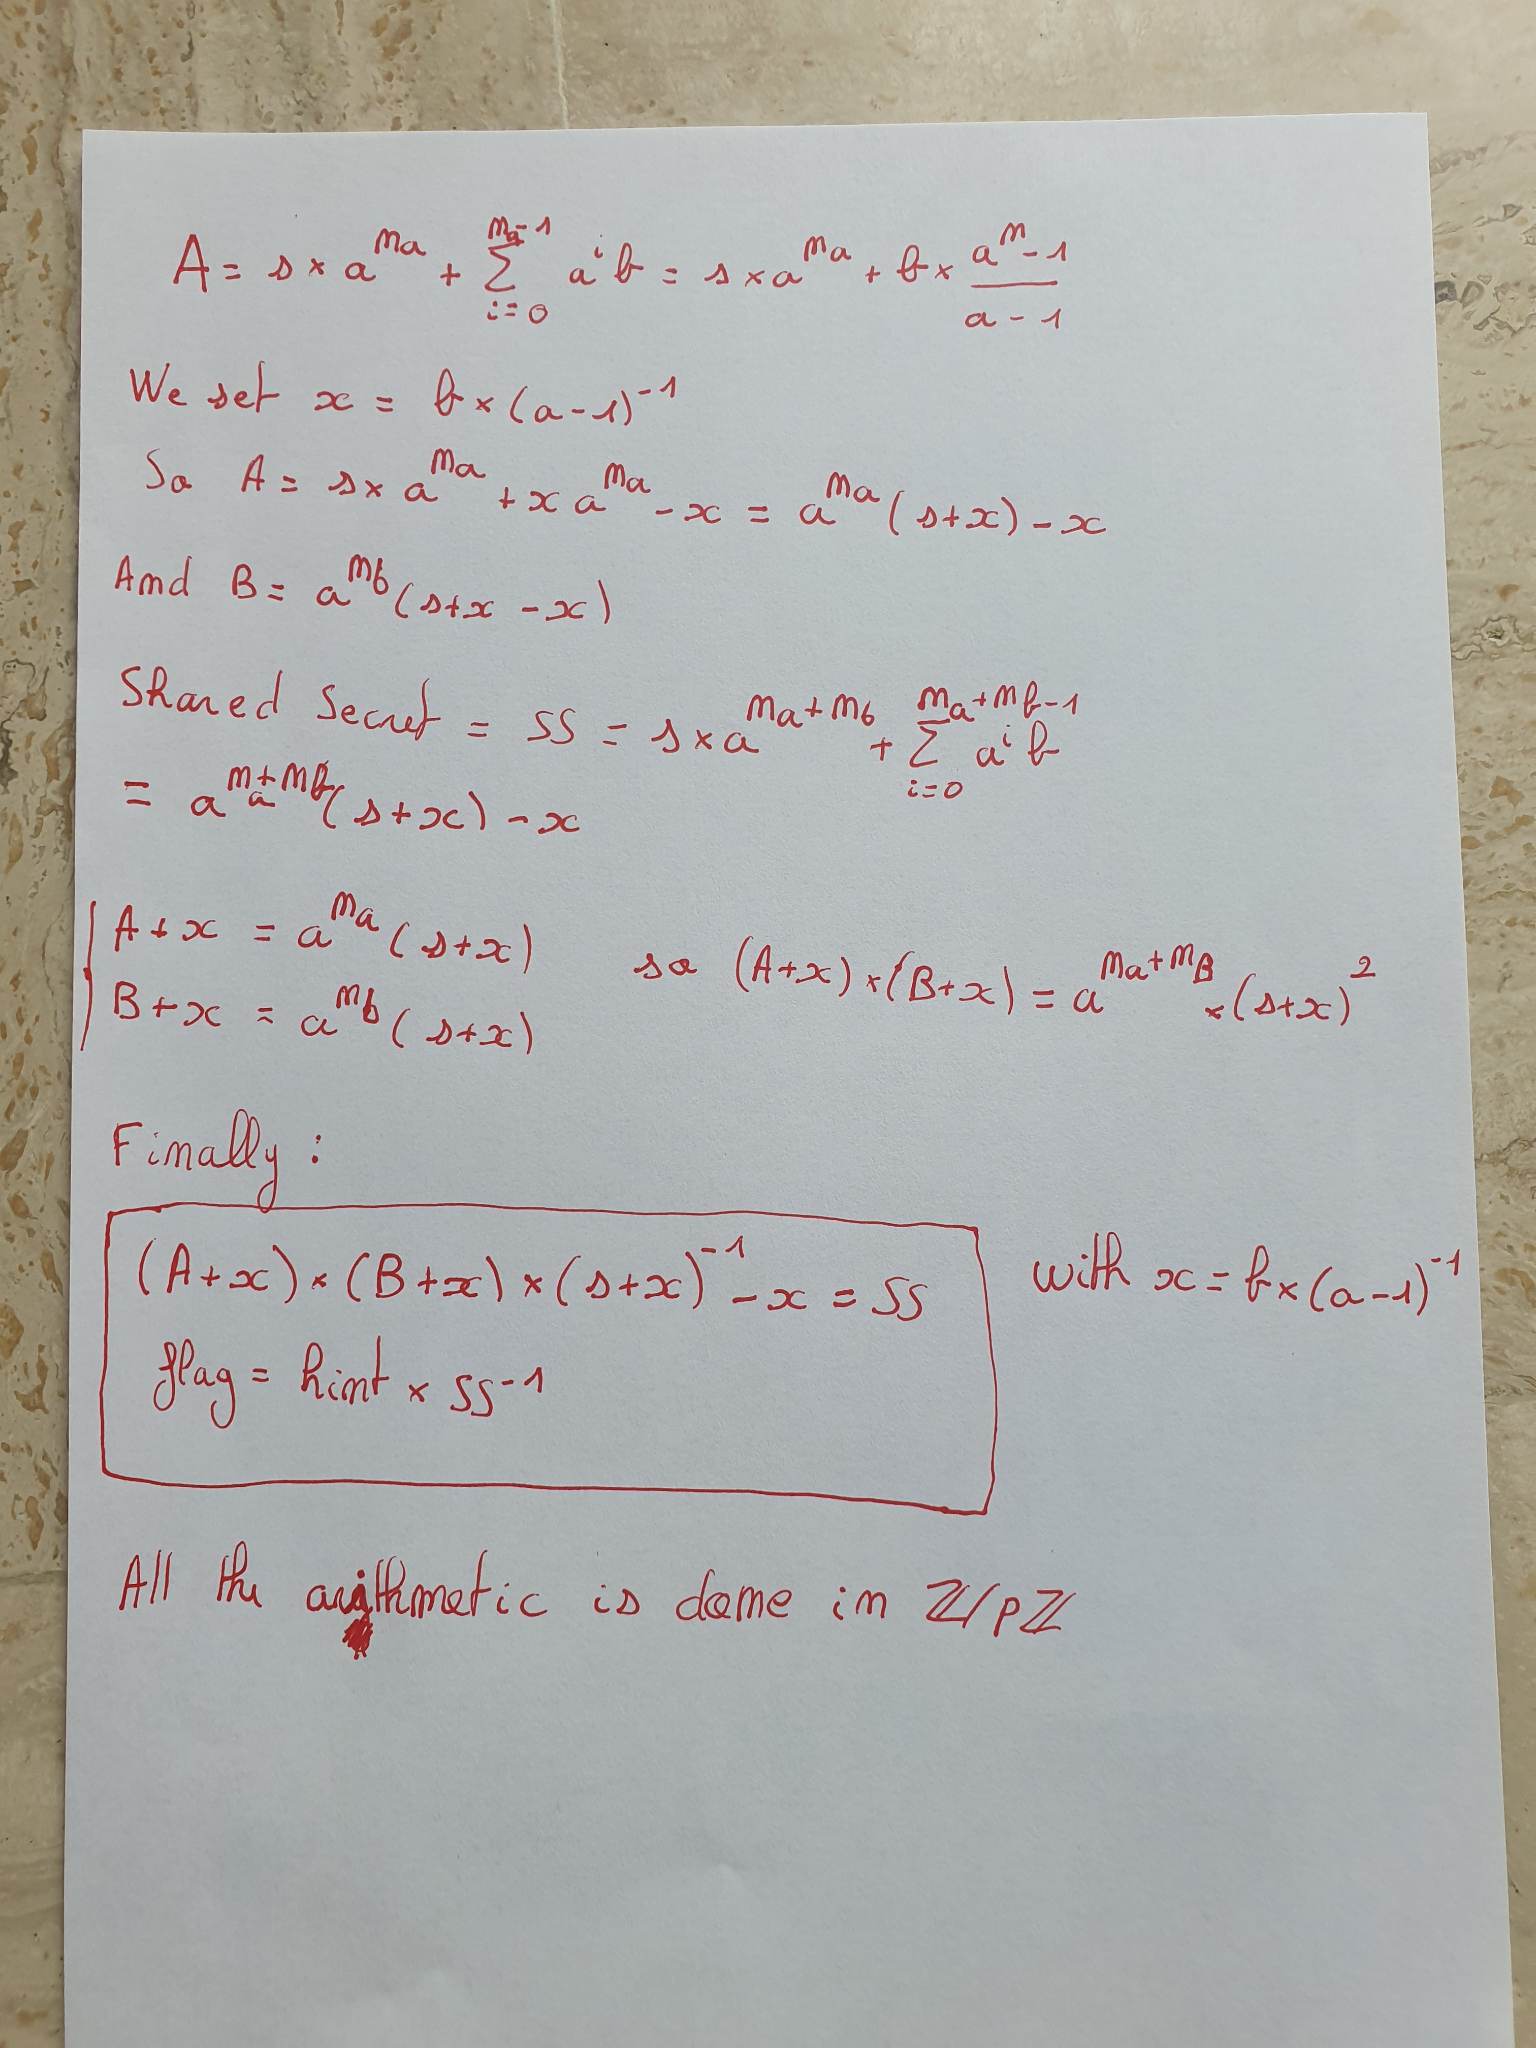 A = s × a^{na} + \sum_{i=0}^{na-1} a^i b = s × a^{na} + b × \frac{a^n - 1}{a - 1}
We set x = b × (a-1)^{-1}
So A = s × a^{na} + x a^{na} - x = a^{na} (s+x) - x
And B = a^{nb} (s+x - x)
Shared Secret = SS = s × a^{na+nb} + \sum_{i=0}^{na+nb-1} a^i b
= a^{na+nb} (s+x) - x
A + x = a^{na} (s+x)
B + x = a^{nb} (s+x)
so (A+x) × (B+x) = a^{na+nB} × (s+x)^2
Finally :
(A+x) × (B+x) × (s+x)^{-1} - x = SS
with x = b × (a-1)^{-1}
flag = hint × SS^{-1}
All the arithmetic is done in ℤ/pℤ